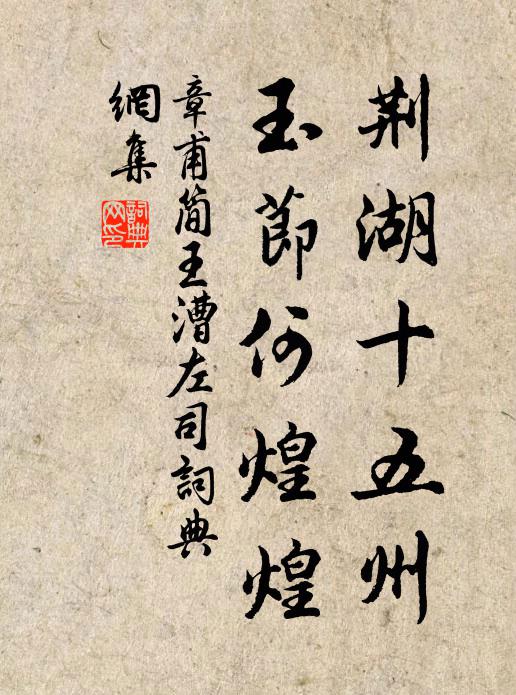 荆湖十五州
玉節何煌煌
章甫简王漕左司詞典
網集
詞典
网印